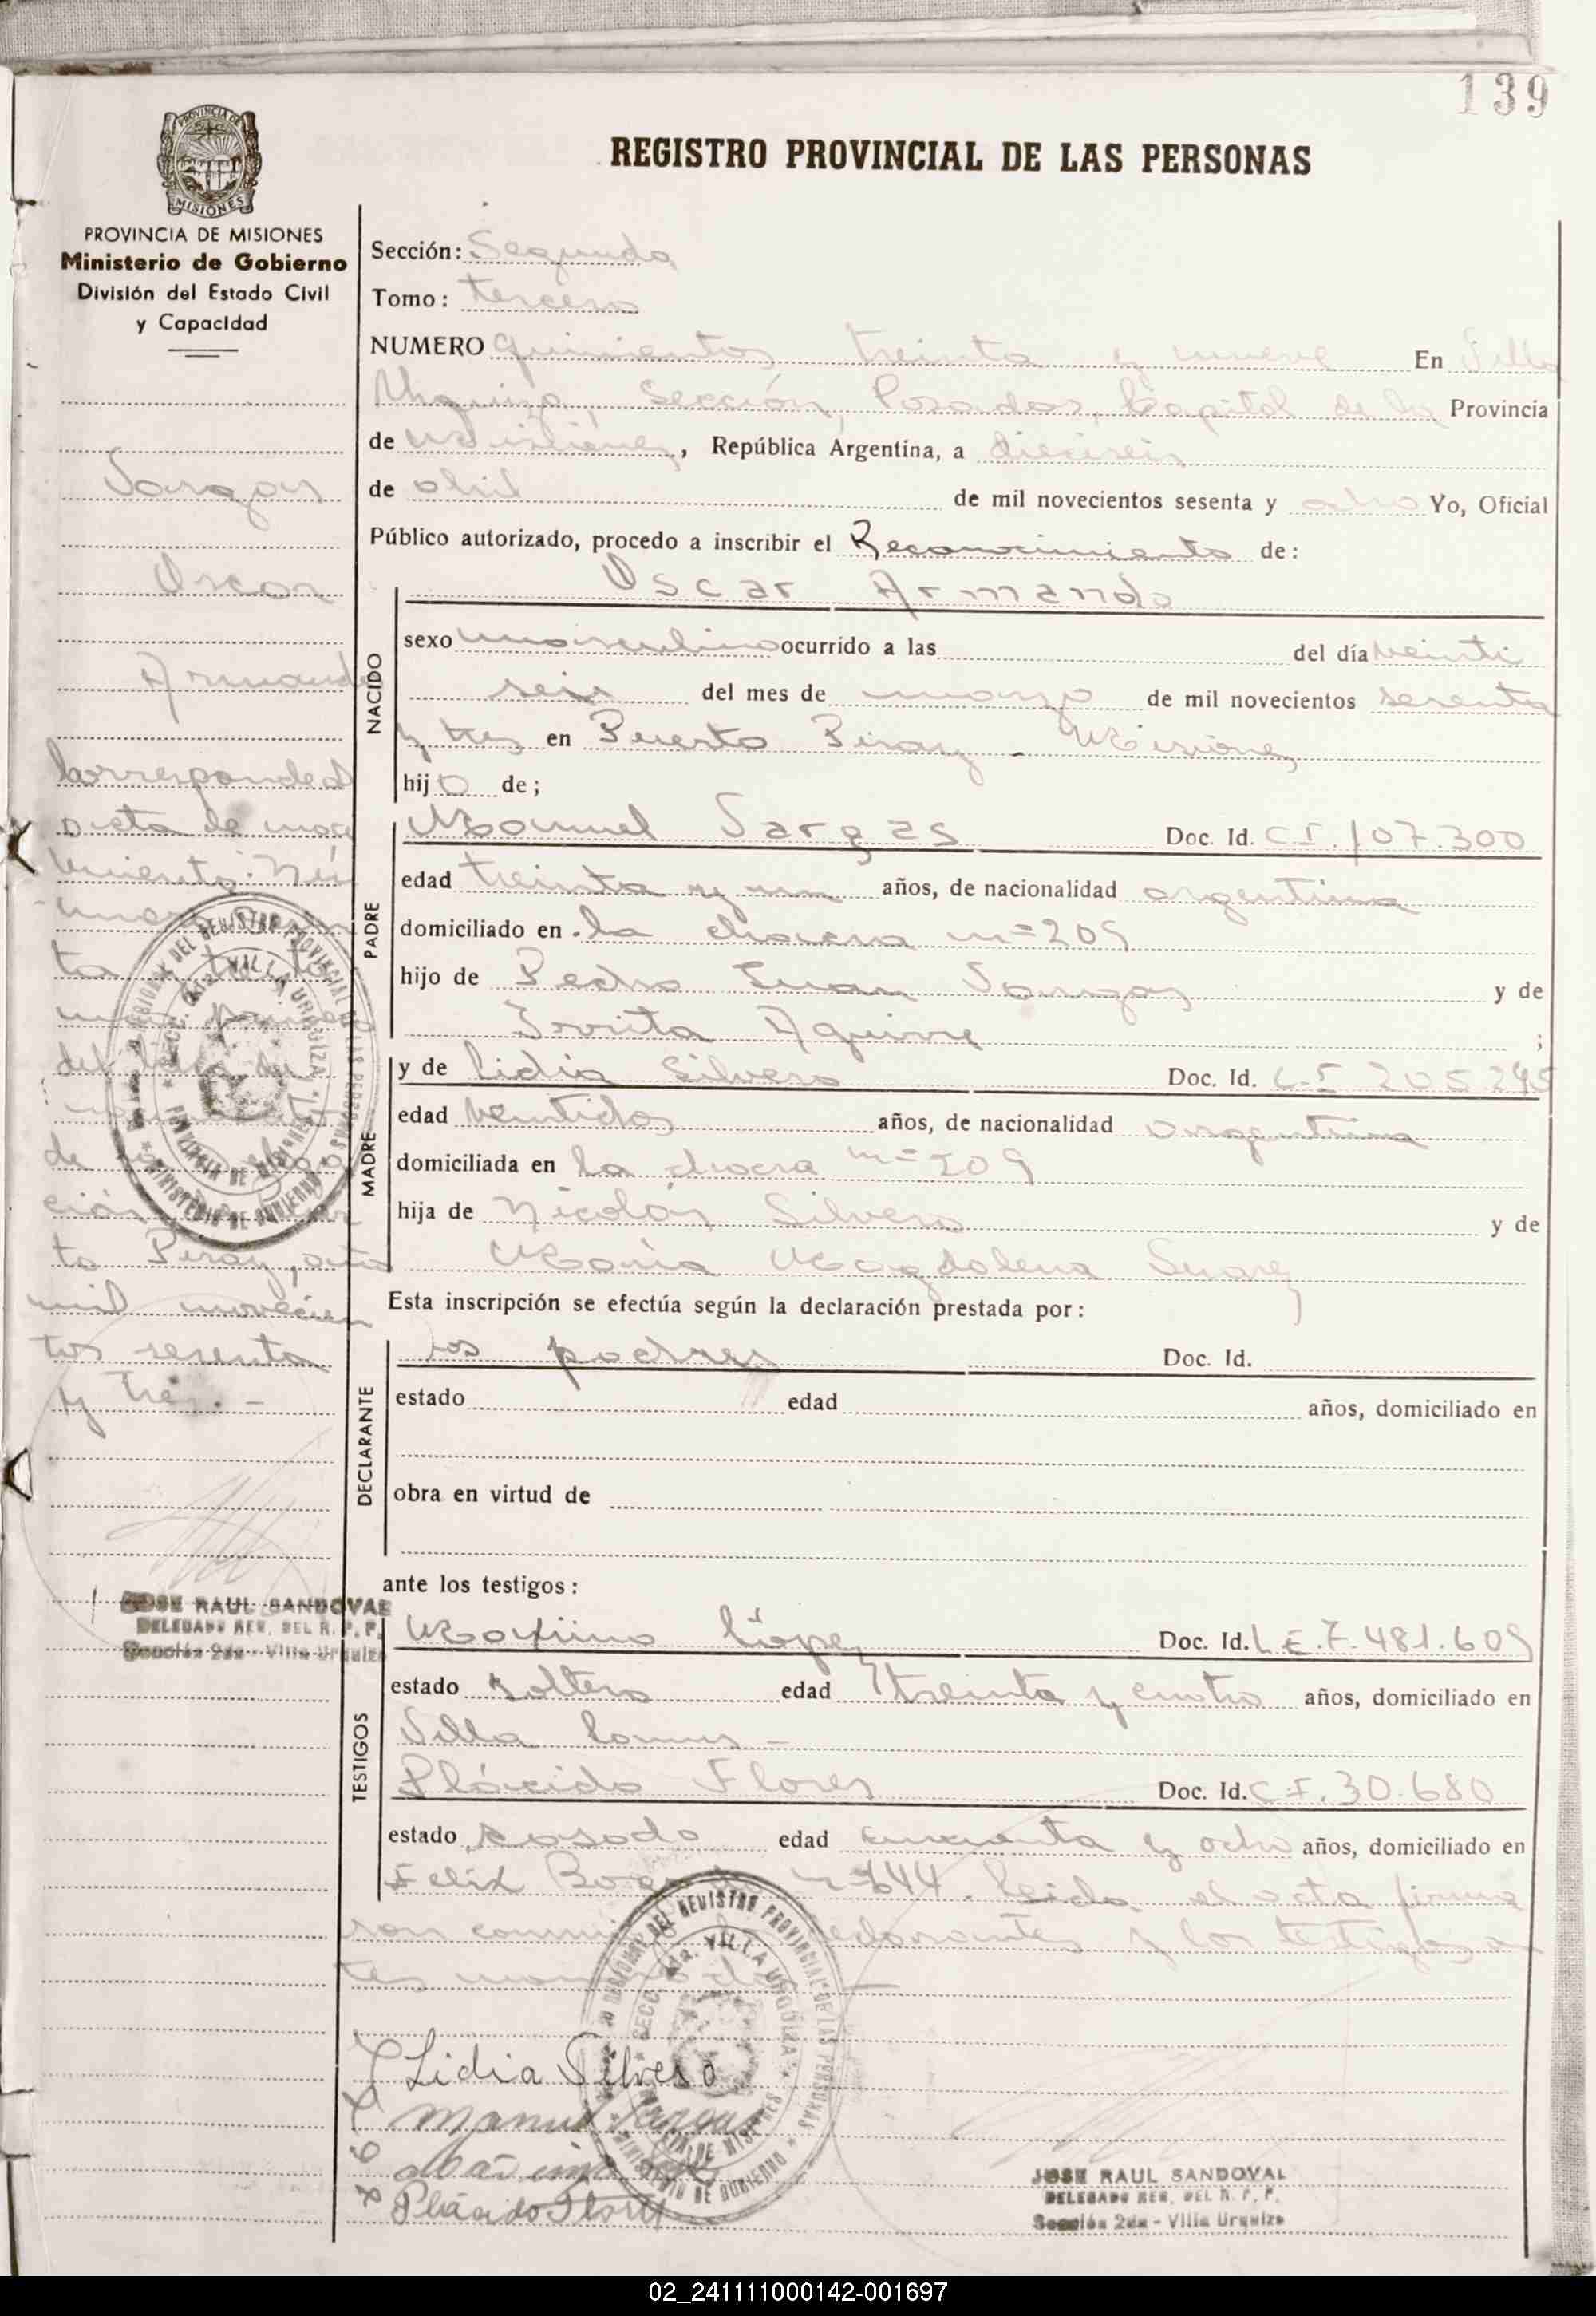 139
REGISTRO PROVINCIAL DE LAS PERSONAS
PROVINCIA DE MISIONES
Ministerio de Gobierno
División del Estado Civil
y Capacidad
Vargas
Oscar
Armando
Corresponde al
acta de naci
miento: Nú
del
de
to Piray, año
mil novecien
tos sesenta
y tres.-
JOSE RAUL SANDOVAL
DELEGADO REG. DEL R. P. P.
Sección 2da - Villa Urquiza
Sección: Segunda
Tomo: tercero
NUMERO quinientos treinta y nueve En Villa
Urquiza, Sección, Posadas, Capital de la Provincia
de Misiones, República Argentina, a dieciseis
de abril de mil novecientos sesenta y ocho Yo, Oficial
Público autorizado, procedo a inscribir el Reconocimiento de:
Oscar Armando
NACIDO
sexo masculino ocurrido a las del día veinti
seis del mes de marzo de mil novecientos sesenta
y tres en Puerto Piray - Misiones
hijo de;
PADRE
Manuel Vargas Doc. Id. C.I. 107.300
edad treinta y un años, de nacionalidad argentina
domiciliado en la chacra nº 209
hijo de Pedro Juan Vargas y de
Aguirre ;
MADRE
y de Lidia Silvero Doc. Id. C.I 205.245
edad veintidos años, de nacionalidad argentina
domiciliada en la chacra nº 209
hija de Nicolás Silvero y de
María Magdalena Suarez
Esta inscripción se efectúa según la declaración prestada por:
DECLARANTE
los padres Doc. Id.
estado edad años, domiciliado en
obra en virtud de
ante los testigos:
TESTIGOS
Maximo López Doc. Id. L.E.7.481.609
estado soltero edad treinta y cuatro años, domiciliado en
Villa
Plácido Flores Doc. Id. C.I. 30.680
estado casado edad cincuenta y ocho años, domiciliado en
Felix nº 644. Leida el acta firma
ron conmigo los declarantes y los testigos an
tes
Lidia Silvero
Manuel Vargas
Plácido Flores
JOSE RAUL SANDOVAL
DELEGADO REG. DEL R. P. P.
Sección 2da - Villa Urquiza
02_241111000142-001697